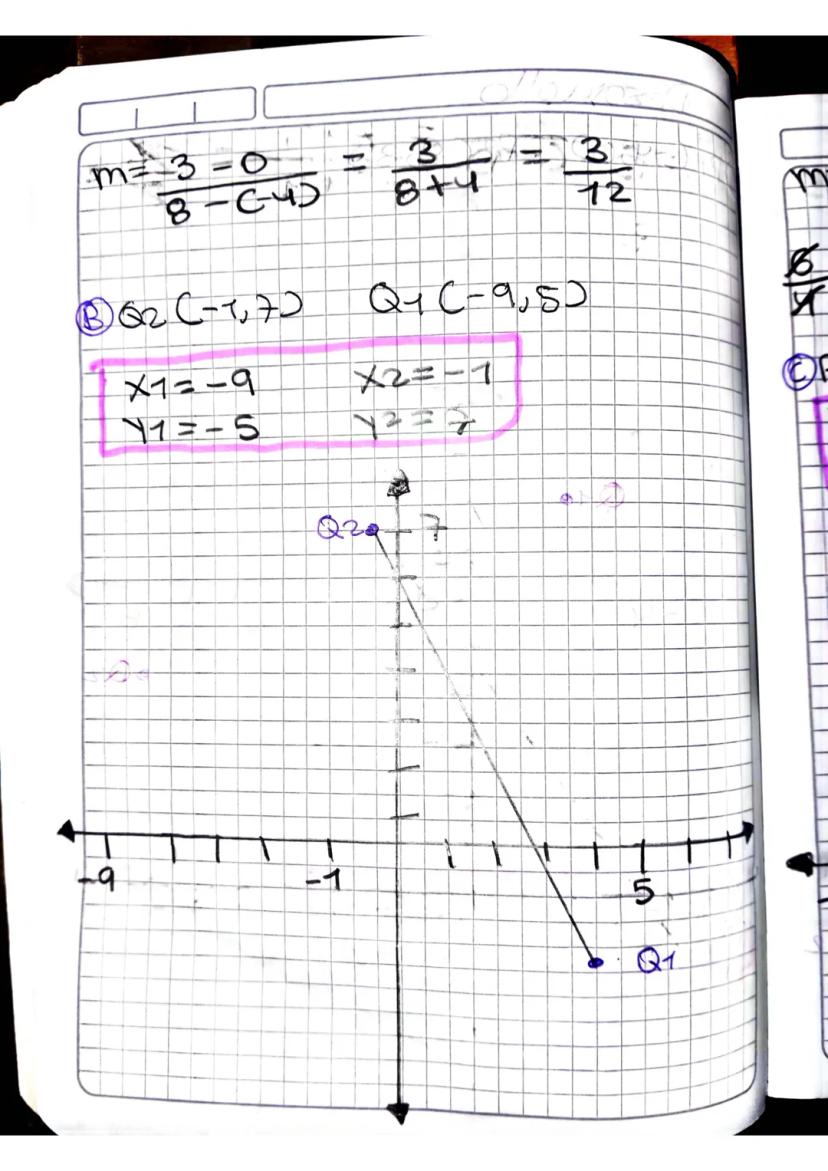 m= 3 - 0 / 8 - (-4) = 3 / 8+4 = 3 / 12
m
B Q2 (-1,7) Q1 (-9,5)
6
C
X1 = -9 X2 = -1
Y1 = -5 Y2 = 7
Q2 7
-9 -1 5
Q1